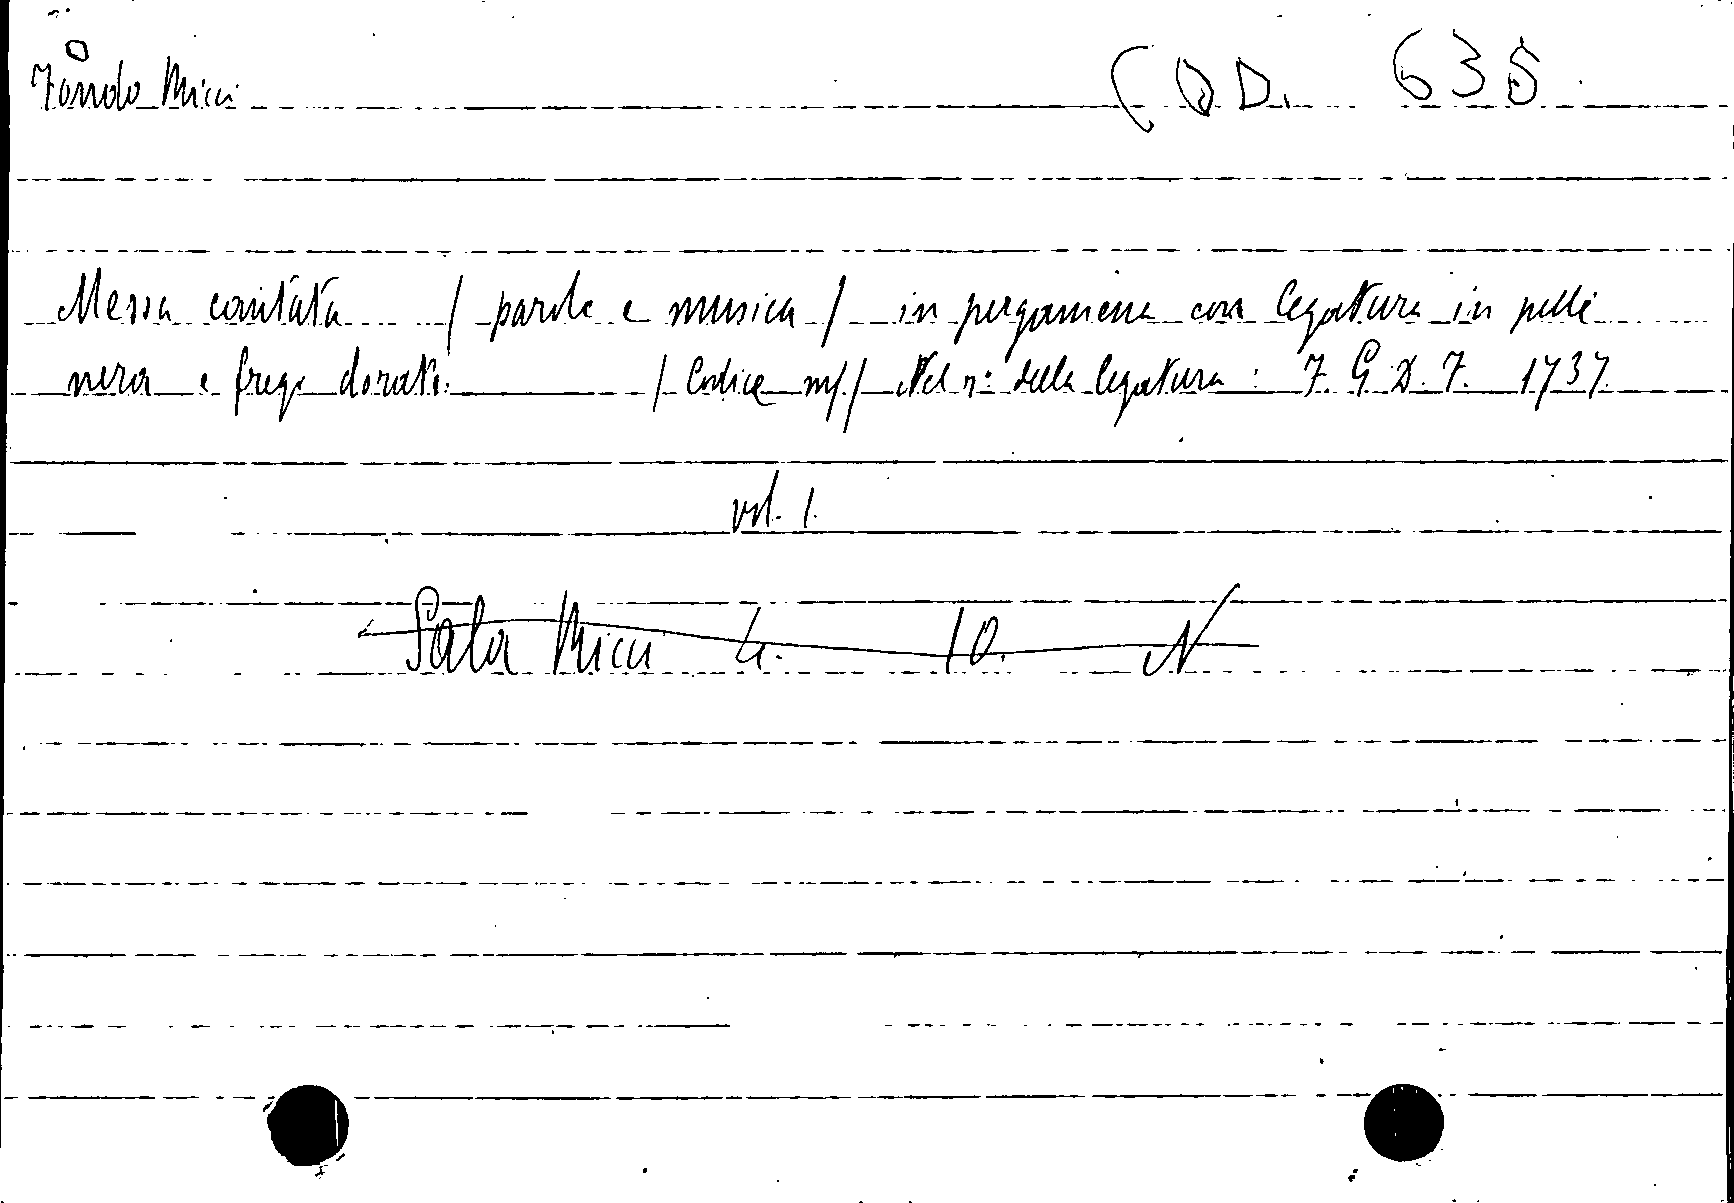 Fondo Micci COD. 635
Messa cantata / parole e musica / in pergamena con legatura in pelle
nera e fregi dorati. / Codice ms / Nel n° della legatura: F. G. D. F. 1737.
vol. 1.
Sala Micci 4. 10. N